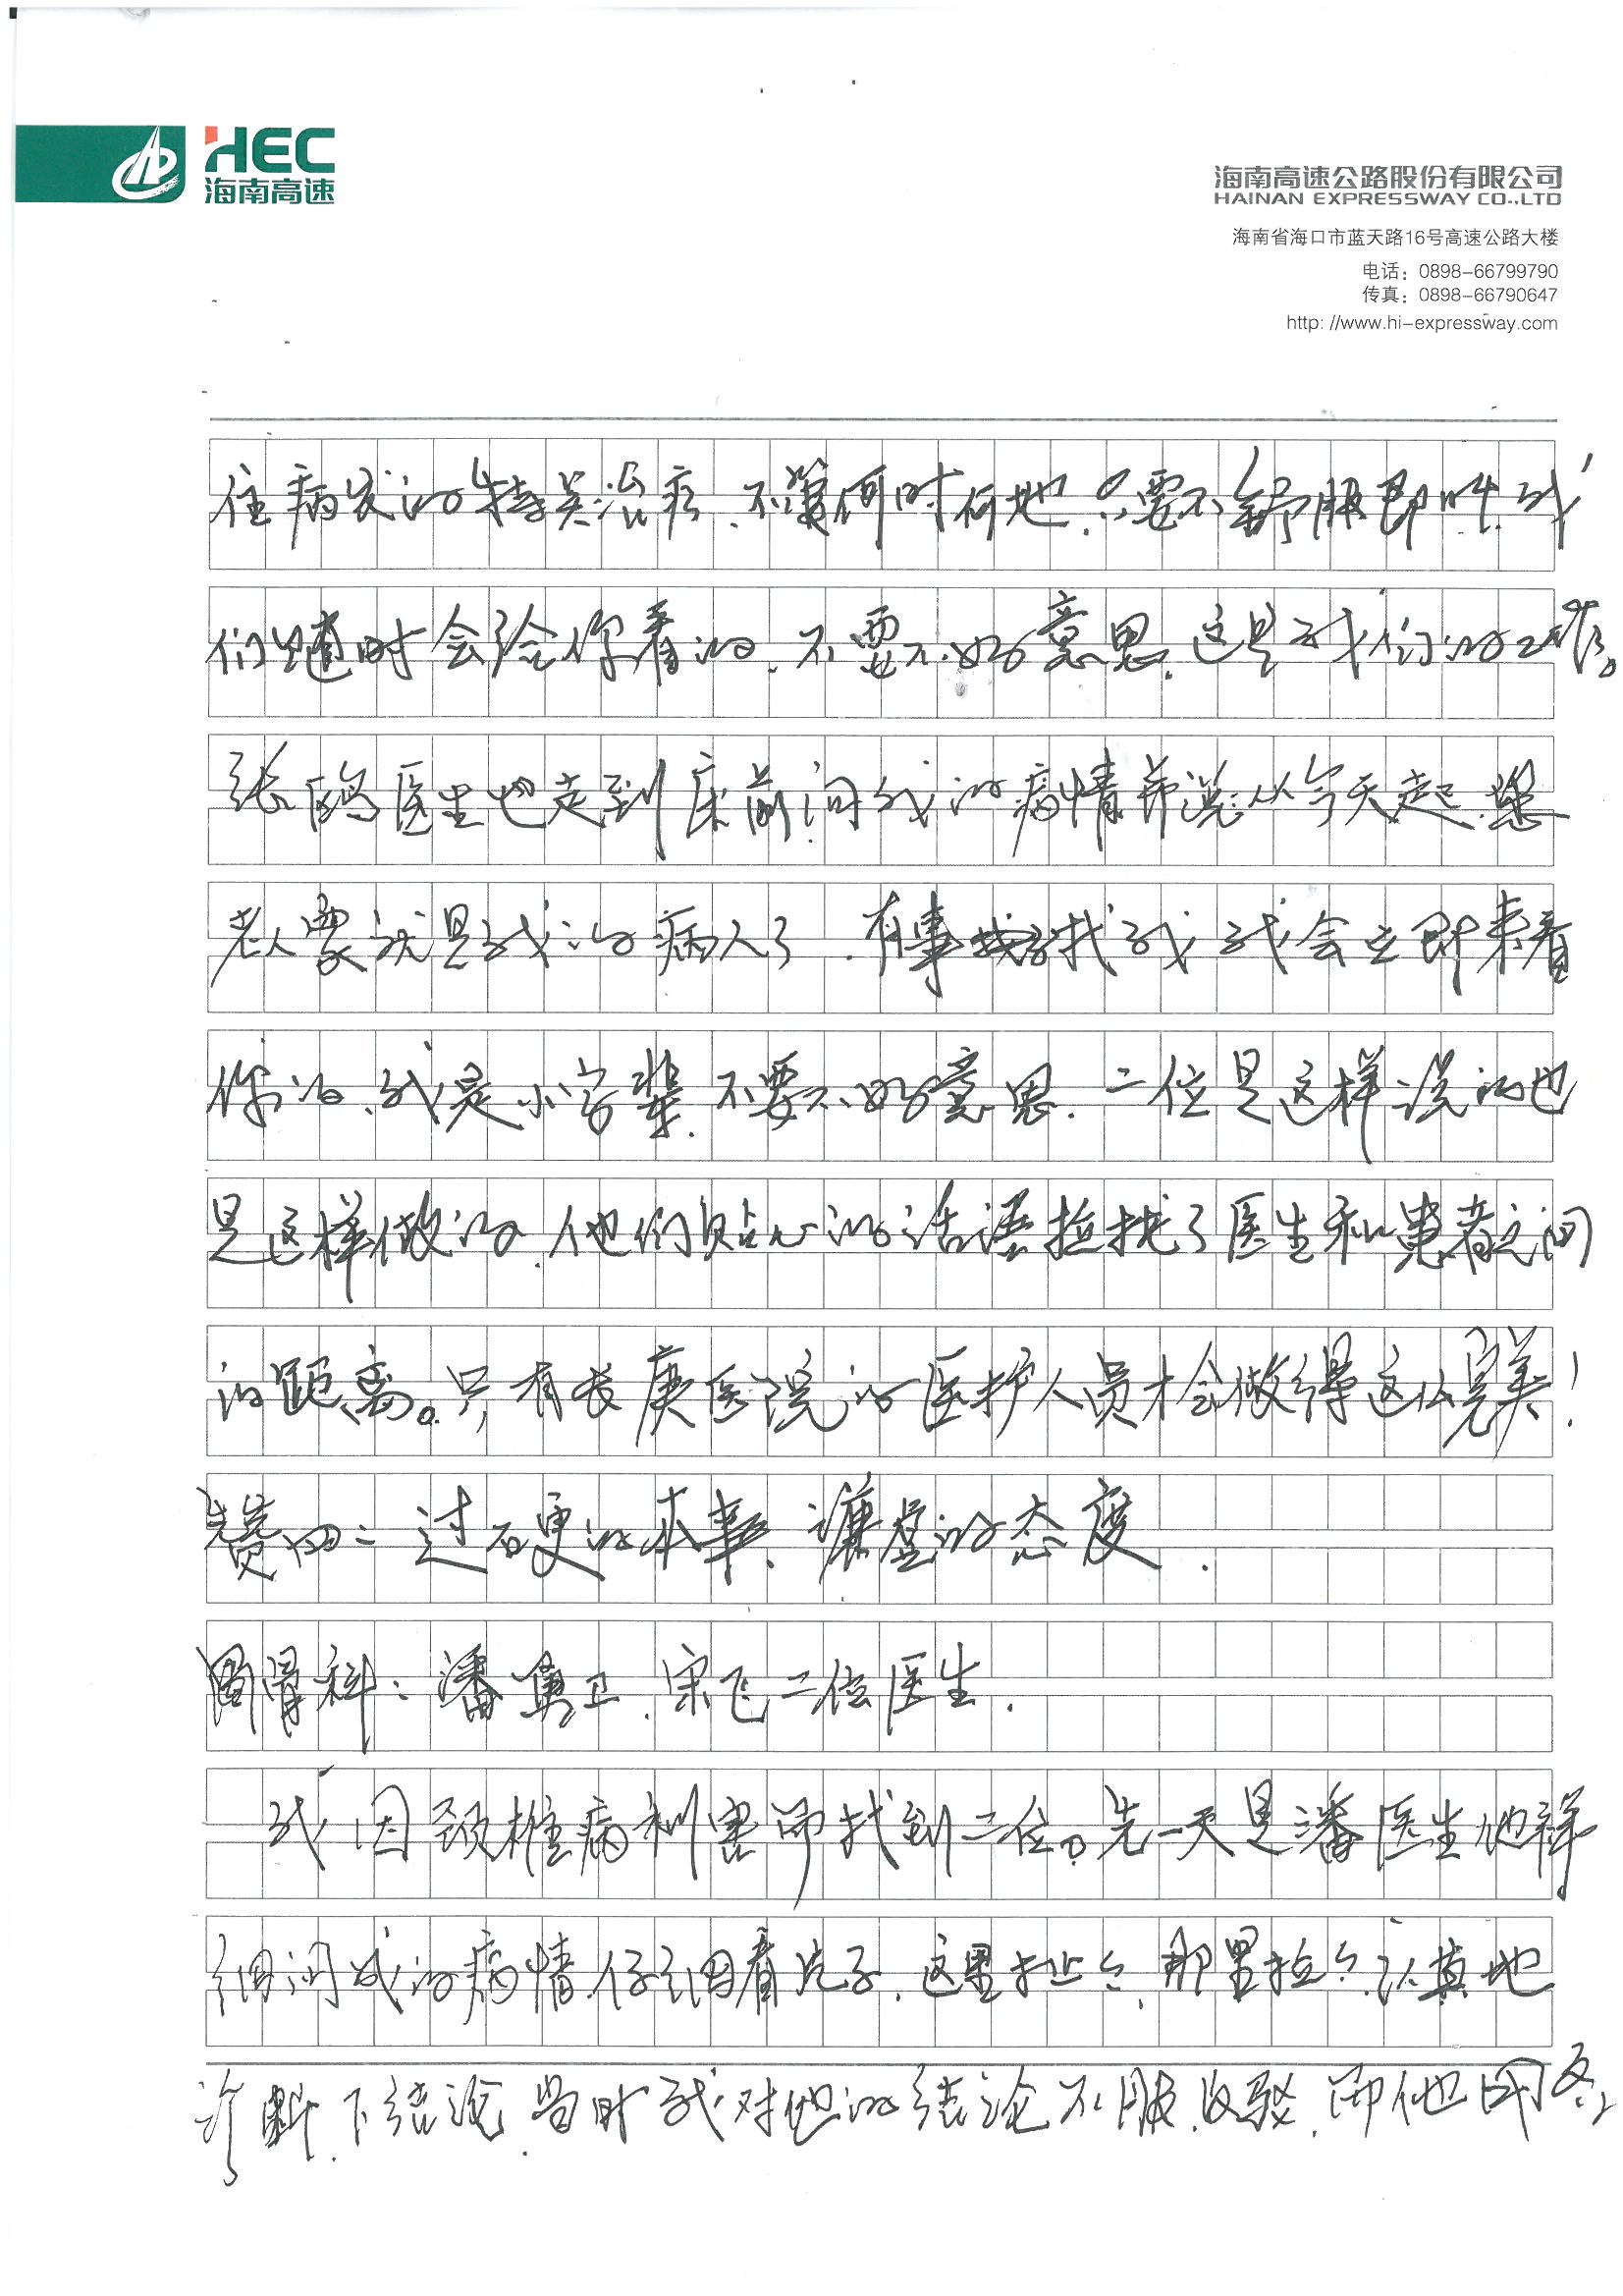 HEC
海南高速
海南高速公路股份有限公司
HAINAN EXPRESSWAY CO.,LTD
海南省海口市蓝天路16号高速公路大楼
电话：0898-66799790
传真：0898-66790647
http://www.hi-expressway.com
住病房的特关治疗、不管何时何地、只要不舒服即叫、我
们随时会给你看的、不要不好意思、这是我们的工作。
张鸥医生也走到床前问我的病情并说:从今天起、您
老人家就是我的病人了、有事找我 我会立即来看
你的、我是小字辈、不要不好意思、二位是这样说的也
是这样做的、他们贴心的话语拉拢了医生和患者之间
的距离。只有长庚医院的医护人员才会做得这么完美!
赞四：过硬的本事、谦虚的态度.
骨科：潘勇卫、宋飞二位医生.
我因颈椎病利害而找到二位。先一天是潘医生他详
细问我的病情、仔细看片子、这里扯扯、那里拉拉、认真地
诊断、下结论、当时我对他的结论不服、反驳、而他